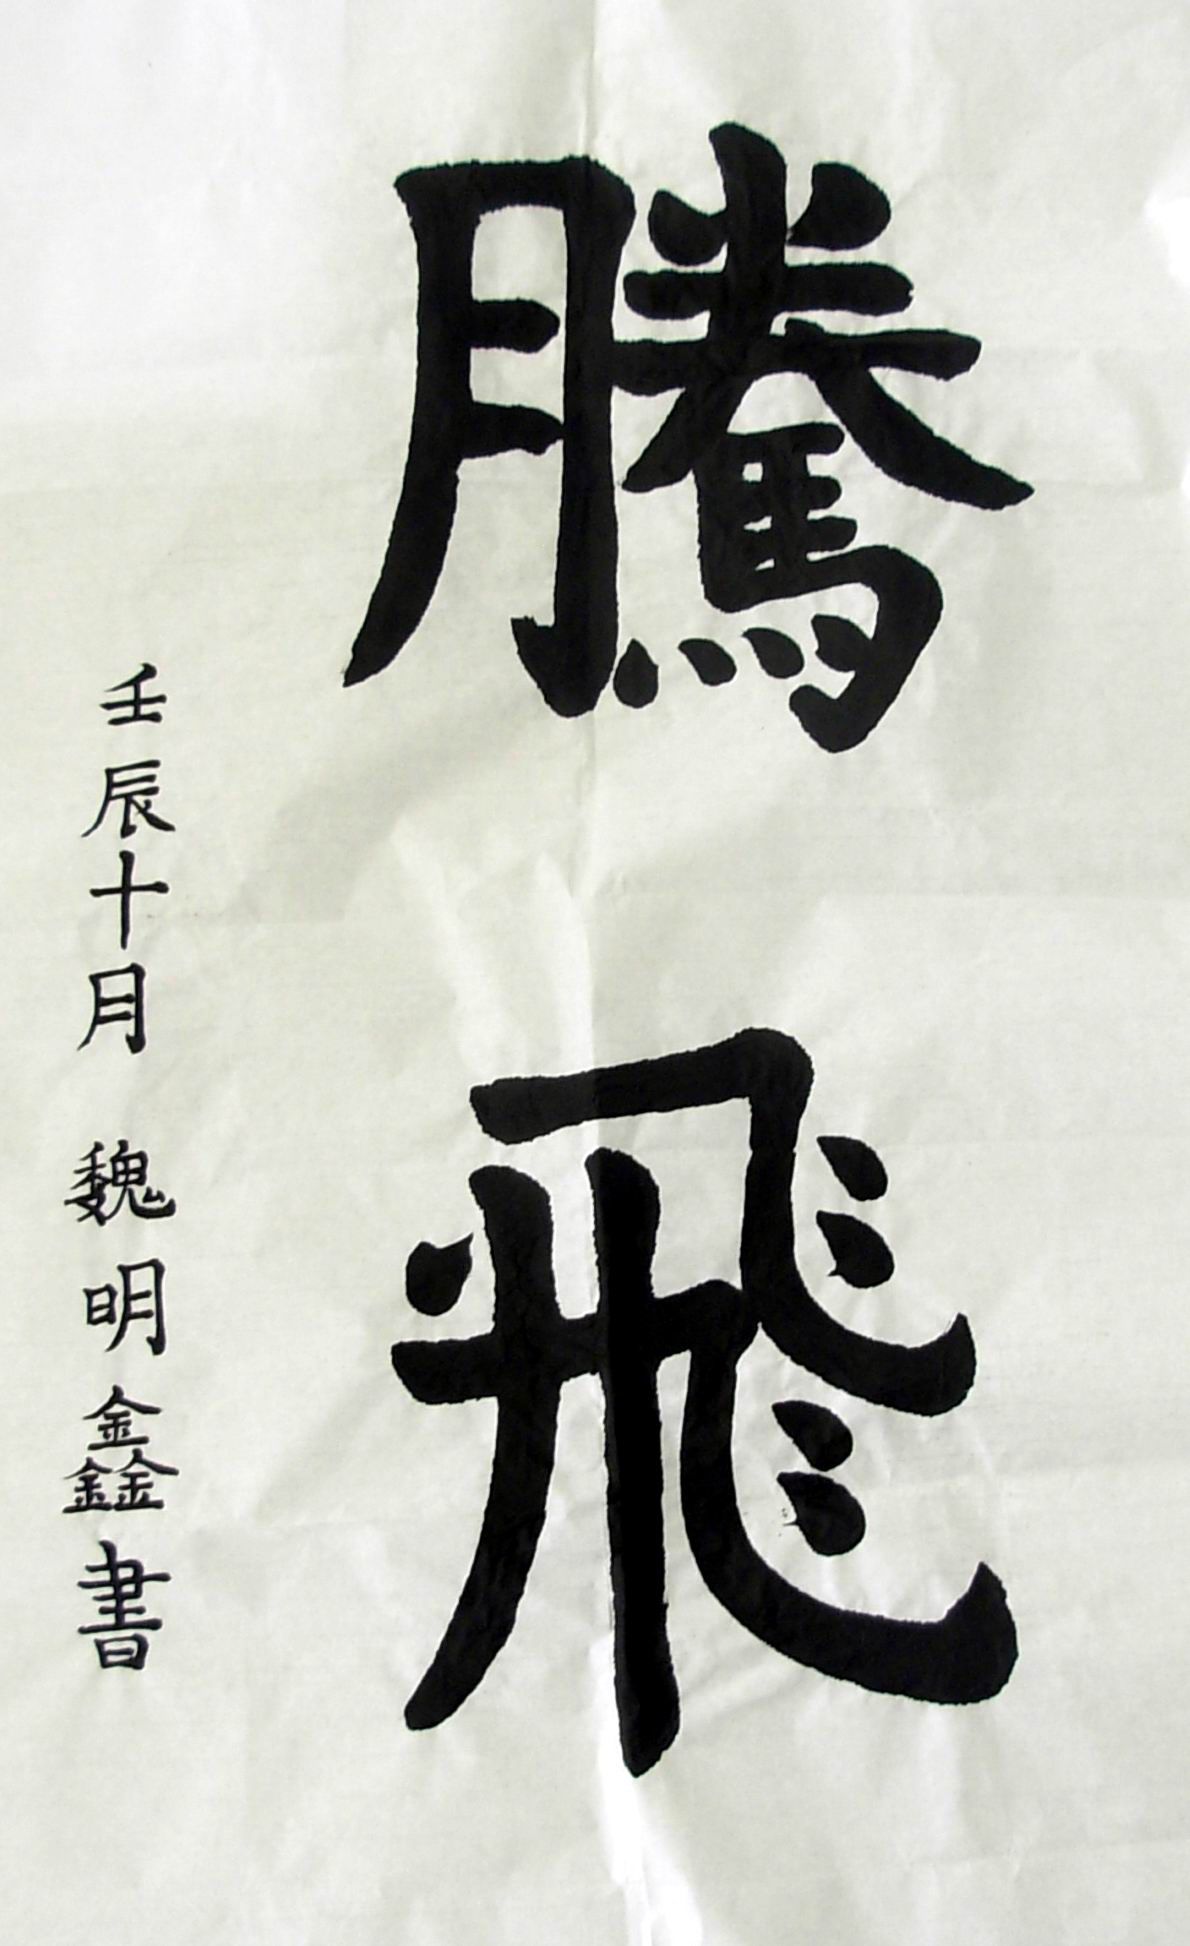 騰飛
壬辰十月 魏明鑫書